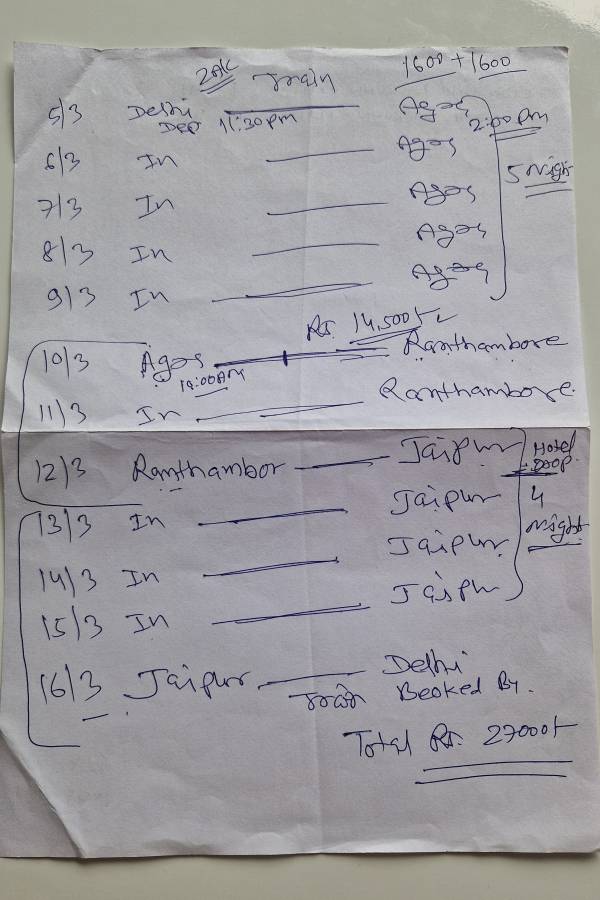 Train 1600 + 1600
5/3 Delhi Agra
Dep 11:30pm 2:00pm
6/3 In Agra
7/3 In Agra 5 Night
8/3 In Agra
9/3 In Agra
Rs. 14,500/-
10/3 Agra Ranthambore
10:00AM
11/3 In Ranthambore
12/3 Ranthambor Jaipur Hotel
Drop.
13/3 In Jaipur 4
Night
14/3 In Jaipur
15/3 In Jaipur
16/3 Jaipur Delhi
Train Booked By.
Total Rs. 27000/-